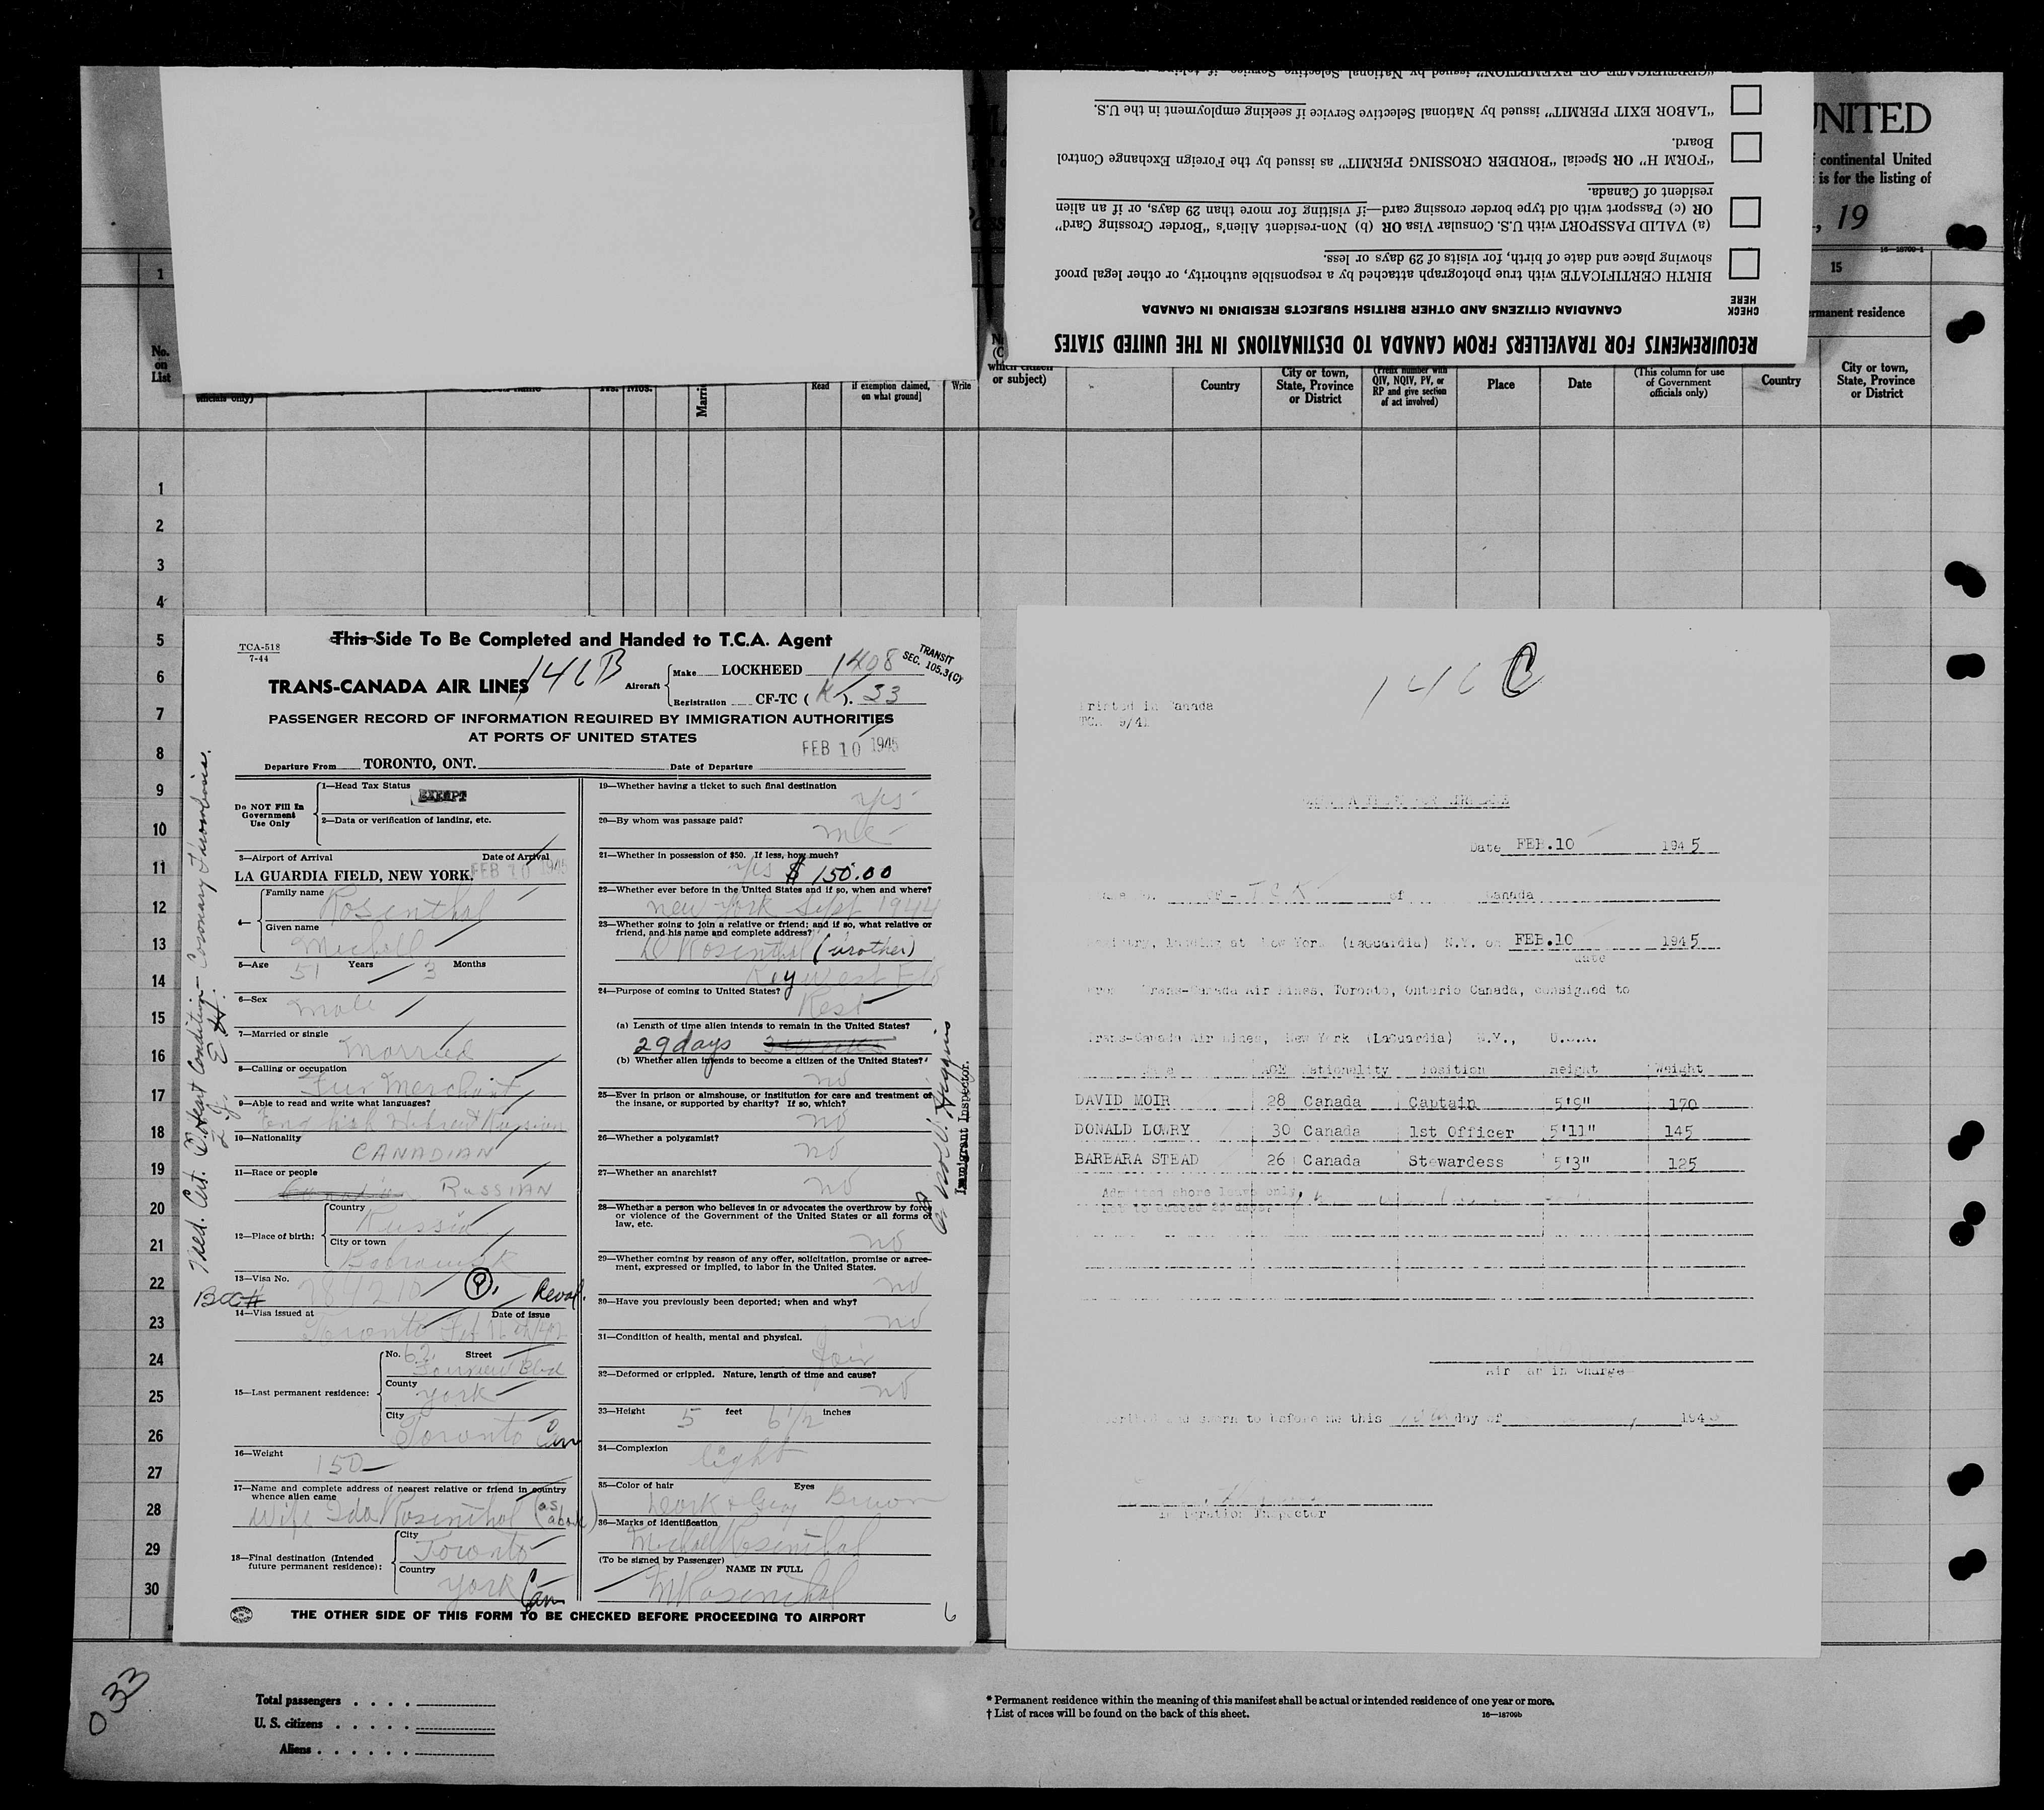 "CERTIFICATE OF EXEMPTION" issued by National Selective Service if
"LABOR EXIT PERMIT" issued by National Selective Service if seeking employment in the U.S.
"FORM H" OR Special "BORDER CROSSING PERMIT" as issued by the Foreign Exchange Control
Board.
(a) VALID PASSPORT with U.S. Consular Visa OR (b) Non-resident Alien's "Border Crossing Card"
OR (c) Passport with old type border crossing card—if visiting for more than 29 days, or if an alien
resident of Canada.
BIRTH CERTIFICATE with true photograph attached by a responsible authority, or other legal proof
showing place and date of birth, for visits of 29 days or less.
CHECK
HERE
CANADIAN CITIZENS AND OTHER BRITISH SUBJECTS RESIDING IN CANADA
REQUIREMENTS FOR TRAVELLERS FROM CANADA TO DESTINATIONS IN THE UNITED STATES
UNITED
continental United
is for the listing of
, 19
16—18709-1
1
15
permanent residence
No.
on
List
officials only)
Yrs. Mos.
Read
if exemption claimed,
on what ground]
Write
which citizen
or subject)
Country
City or town,
State, Province
or District
(Prefix number with
QIV, NQIV, PV, or
RP and give section
of act involved)
Place
Date
(This column for use
of Government
officials only)
Country
City or town,
State, Province
or District
1
2
3
4
5
6
7
8
9
10
11
12
13
14
15
16
17
18
19
20
21
22
23
24
25
26
27
28
29
30
TCA-518
7-44
This Side To Be Completed and Handed to T.C.A. Agent
TRANS-CANADA AIR LINES 146B
Aircraft
Make LOCKHEED 1408
Registration CF-TC ( K ). 33
TRANSIT
SEC. 105.3(C)
PASSENGER RECORD OF INFORMATION REQUIRED BY IMMIGRATION AUTHORITIES
AT PORTS OF UNITED STATES
FEB 10 1945
Departure From TORONTO, ONT. Date of Departure
Do NOT Fill In
Government
Use Only
1—Head Tax Status EXEMPT
2—Data or verification of landing, etc.
3—Airport of Arrival Date of Arrival
LA GUARDIA FIELD, NEW YORK. FEB 10 1945
4—
Family name Rosenthal
Given name Michall
5—Age 51 Years 3 Months
6—Sex Male
7—Married or single Married
8—Calling or occupation Fur Merchant
9—Able to read and write what languages?
English Hebrew Russian
10—Nationality CANADIAN
11—Race or people
Canadian RUSSIAN
12—Place of birth:
Country Russia
City or town Bobrouisk
13—Visa No. 784210 Reval.
BCC#
14—Visa issued at Date of issue
Toronto Feb
15—Last permanent residence:
No. 62 Street
Fairview Blvd
County York
City Toronto Can
16—Weight 150
17—Name and complete address of nearest relative or friend in country
whence alien came
Wife Ida Rosenthal (as above)
18—Final destination (Intended
future permanent residence):
City Toronto
Country York Can
19—Whether having a ticket to such final destination
yes
20—By whom was passage paid?
me
21—Whether in possession of $50. If less, how much?
yes $ 150.00
22—Whether ever before in the United States and if so, when and where?
New York Sept 1944
23—Whether going to join a relative or friend; and if so, what relative or
friend, and his name and complete address?
D Rosenthal (brother)
Key West Fla
24—Purpose of coming to United States?
Rest
(a) Length of time alien intends to remain in the United States?
29 days
(b) Whether alien intends to become a citizen of the United States?
no
25—Ever in prison or almshouse, or institution for care and treatment of
the insane, or supported by charity? If so, which?
no
26—Whether a polygamist?
no
27—Whether an anarchist?
no
28—Whether a person who believes in or advocates the overthrow by force
or violence of the Government of the United States or all forms of
law, etc.
no
29—Whether coming by reason of any offer, solicitation, promise or agree-
ment, expressed or implied, to labor in the United States.
no
30—Have you previously been deported; when and why?
no
31—Condition of health, mental and physical.
fair
32—Deformed or crippled. Nature, length of time and cause?
no
33—Height 5 feet 6 1/2 inches
34—Complexion light
35—Color of hair Eyes
Dark & Grey Brown
36—Marks of identification
Michall Rosenthal
(To be signed by Passenger) NAME IN FULL
M Rosenthal
THE OTHER SIDE OF THIS FORM TO BE CHECKED BEFORE PROCEEDING TO AIRPORT
6
Med. Cert. Heart Condition— Coronary Thrombosis.
Immigrant Inspector.
146C
Printed in Canada
TCA 9/41
Date FEB.10 1945
CF-TCK of Canada
landing at New York (LaGuardia) N.Y. on FEB.10 1945
date
From Trans-Canada Air Lines, Toronto, Ontario Canada, consigned to
Trans-Canada Air Lines, New York (LaGuardia) N.Y., U.S.A.
Name AGE Nationality Position Height Weight
DAVID MOIR 28 Canada Captain 5'9" 170
DONALD LOWRY 30 Canada 1st Officer 5'11" 145
BARBARA STEAD 26 Canada Stewardess 5'3" 125
Admitted shore leave only,
Not to exceed 29 days.
Airman in Charge
and sworn to before me this day of 194
Immigration Inspector
033
Total passengers
U. S. citizens
Aliens
* Permanent residence within the meaning of this manifest shall be actual or intended residence of one year or more.
† List of races will be found on the back of this sheet.
16—18709b